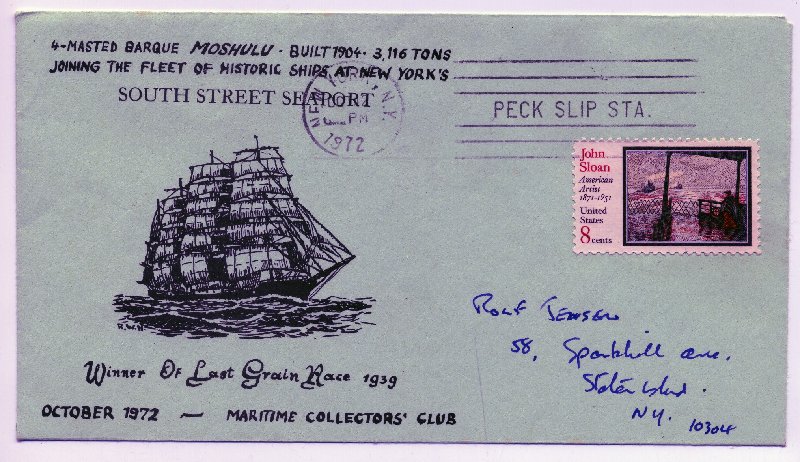 4-MASTED BARQUE MOSHULU · BUILT 1904 · 3,116 TONS
JOINING THE FLEET OF HISTORIC SHIPS AT NEW YORK'S
SOUTH STREET SEAPORT
NEW YORK, N.Y.
PM
1972
PECK SLIP STA.
John
Sloan
American
Artist
1871-1951
United
States
8 cents
R.W.H.
Winner Of Last Grain Race 1939
OCTOBER 1972 — MARITIME COLLECTORS' CLUB
Rolf Jensen
58, Sparkhill Ave.
Staten Island.
N.Y. 10304